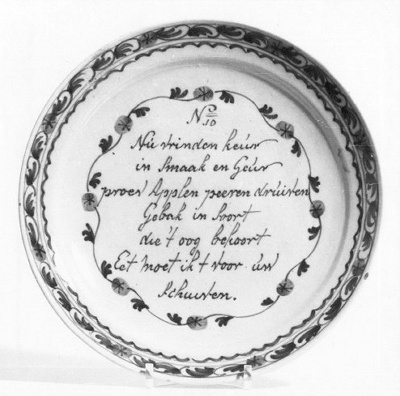 No 10
Nu vrinden keur
in Smaak en Geur
proev Applen peeren druiven
Gebak in Soort
die 't oog bekoort
Eet moet ik 't voor uw
schuiven.